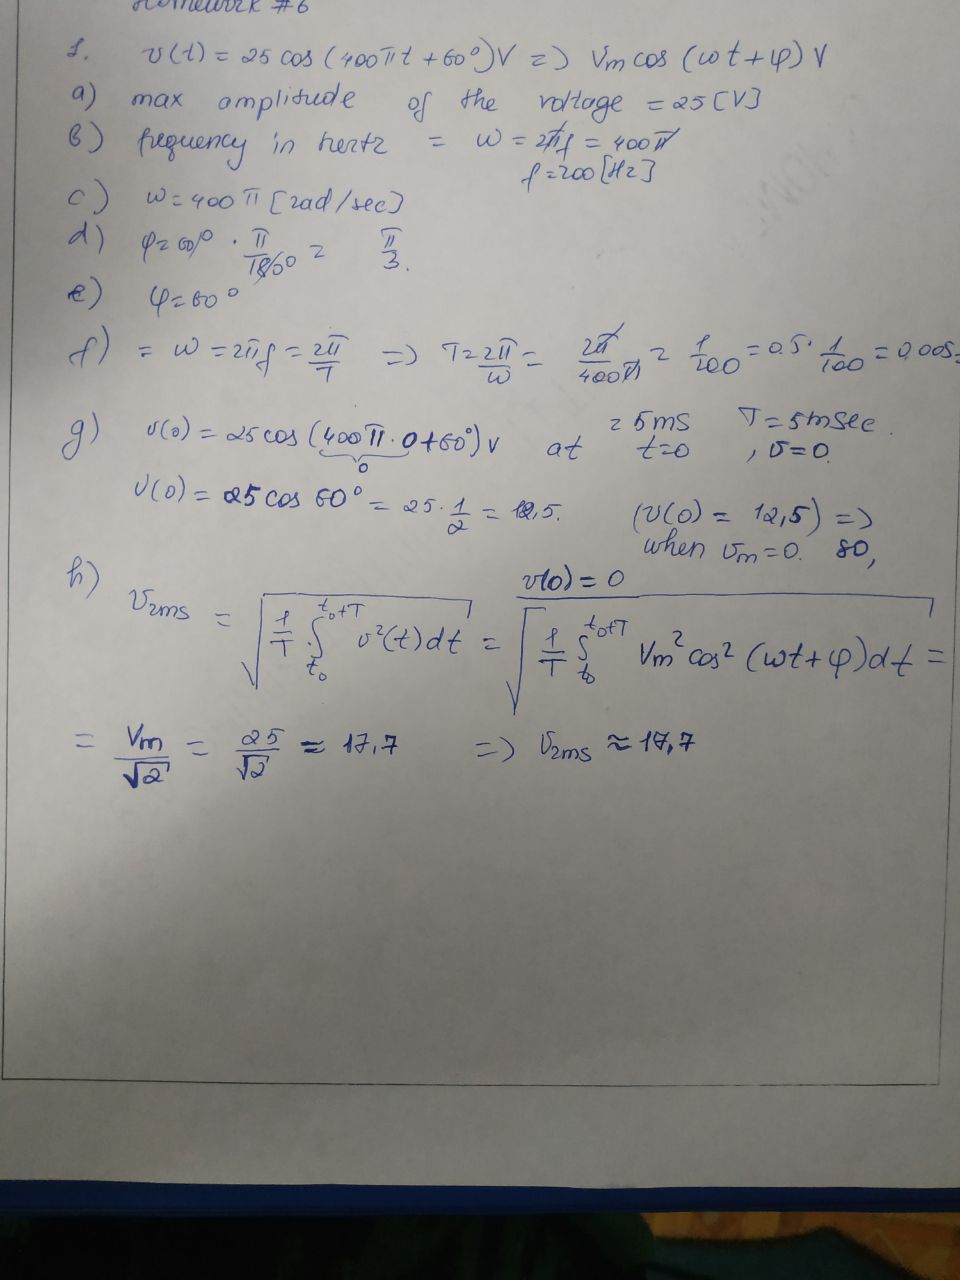 Homework #6
1. v(t) = 25 cos (400πt + 60°)V => Vm cos (ωt + φ) V
a) max amplitude of the voltage = 25 [V]
b) frequency in hertz = ω = 2πf = 400π
f = 200 [Hz]
c) ω = 400π [rad/sec]
d) φ = 60° · π/180° = π/3.
e) φ = 60°
f) = ω = 2πf = 2π/T => T = 2π/ω = 2π/400π = 1/200 = 0.5 · 1/100 = 0,005 =
= 5ms T = 5msec.
g) v(0) = 25 cos (400π · 0 + 60°) V at t=0, v=0.
0
v(0) = 25 cos 60° = 25 · 1/2 = 12,5. (v(0) = 12,5) =>
when vm = 0. so,
v(0) = 0
h) vrms = √(1/T ∫_{t0}^{t0+T} v²(t)dt) = √(1/T ∫_{t0}^{t0+T} Vm² cos² (ωt + φ)dt) =
= Vm/√2 = 25/√2 ≈ 17,7 => vrms ≈ 17,7